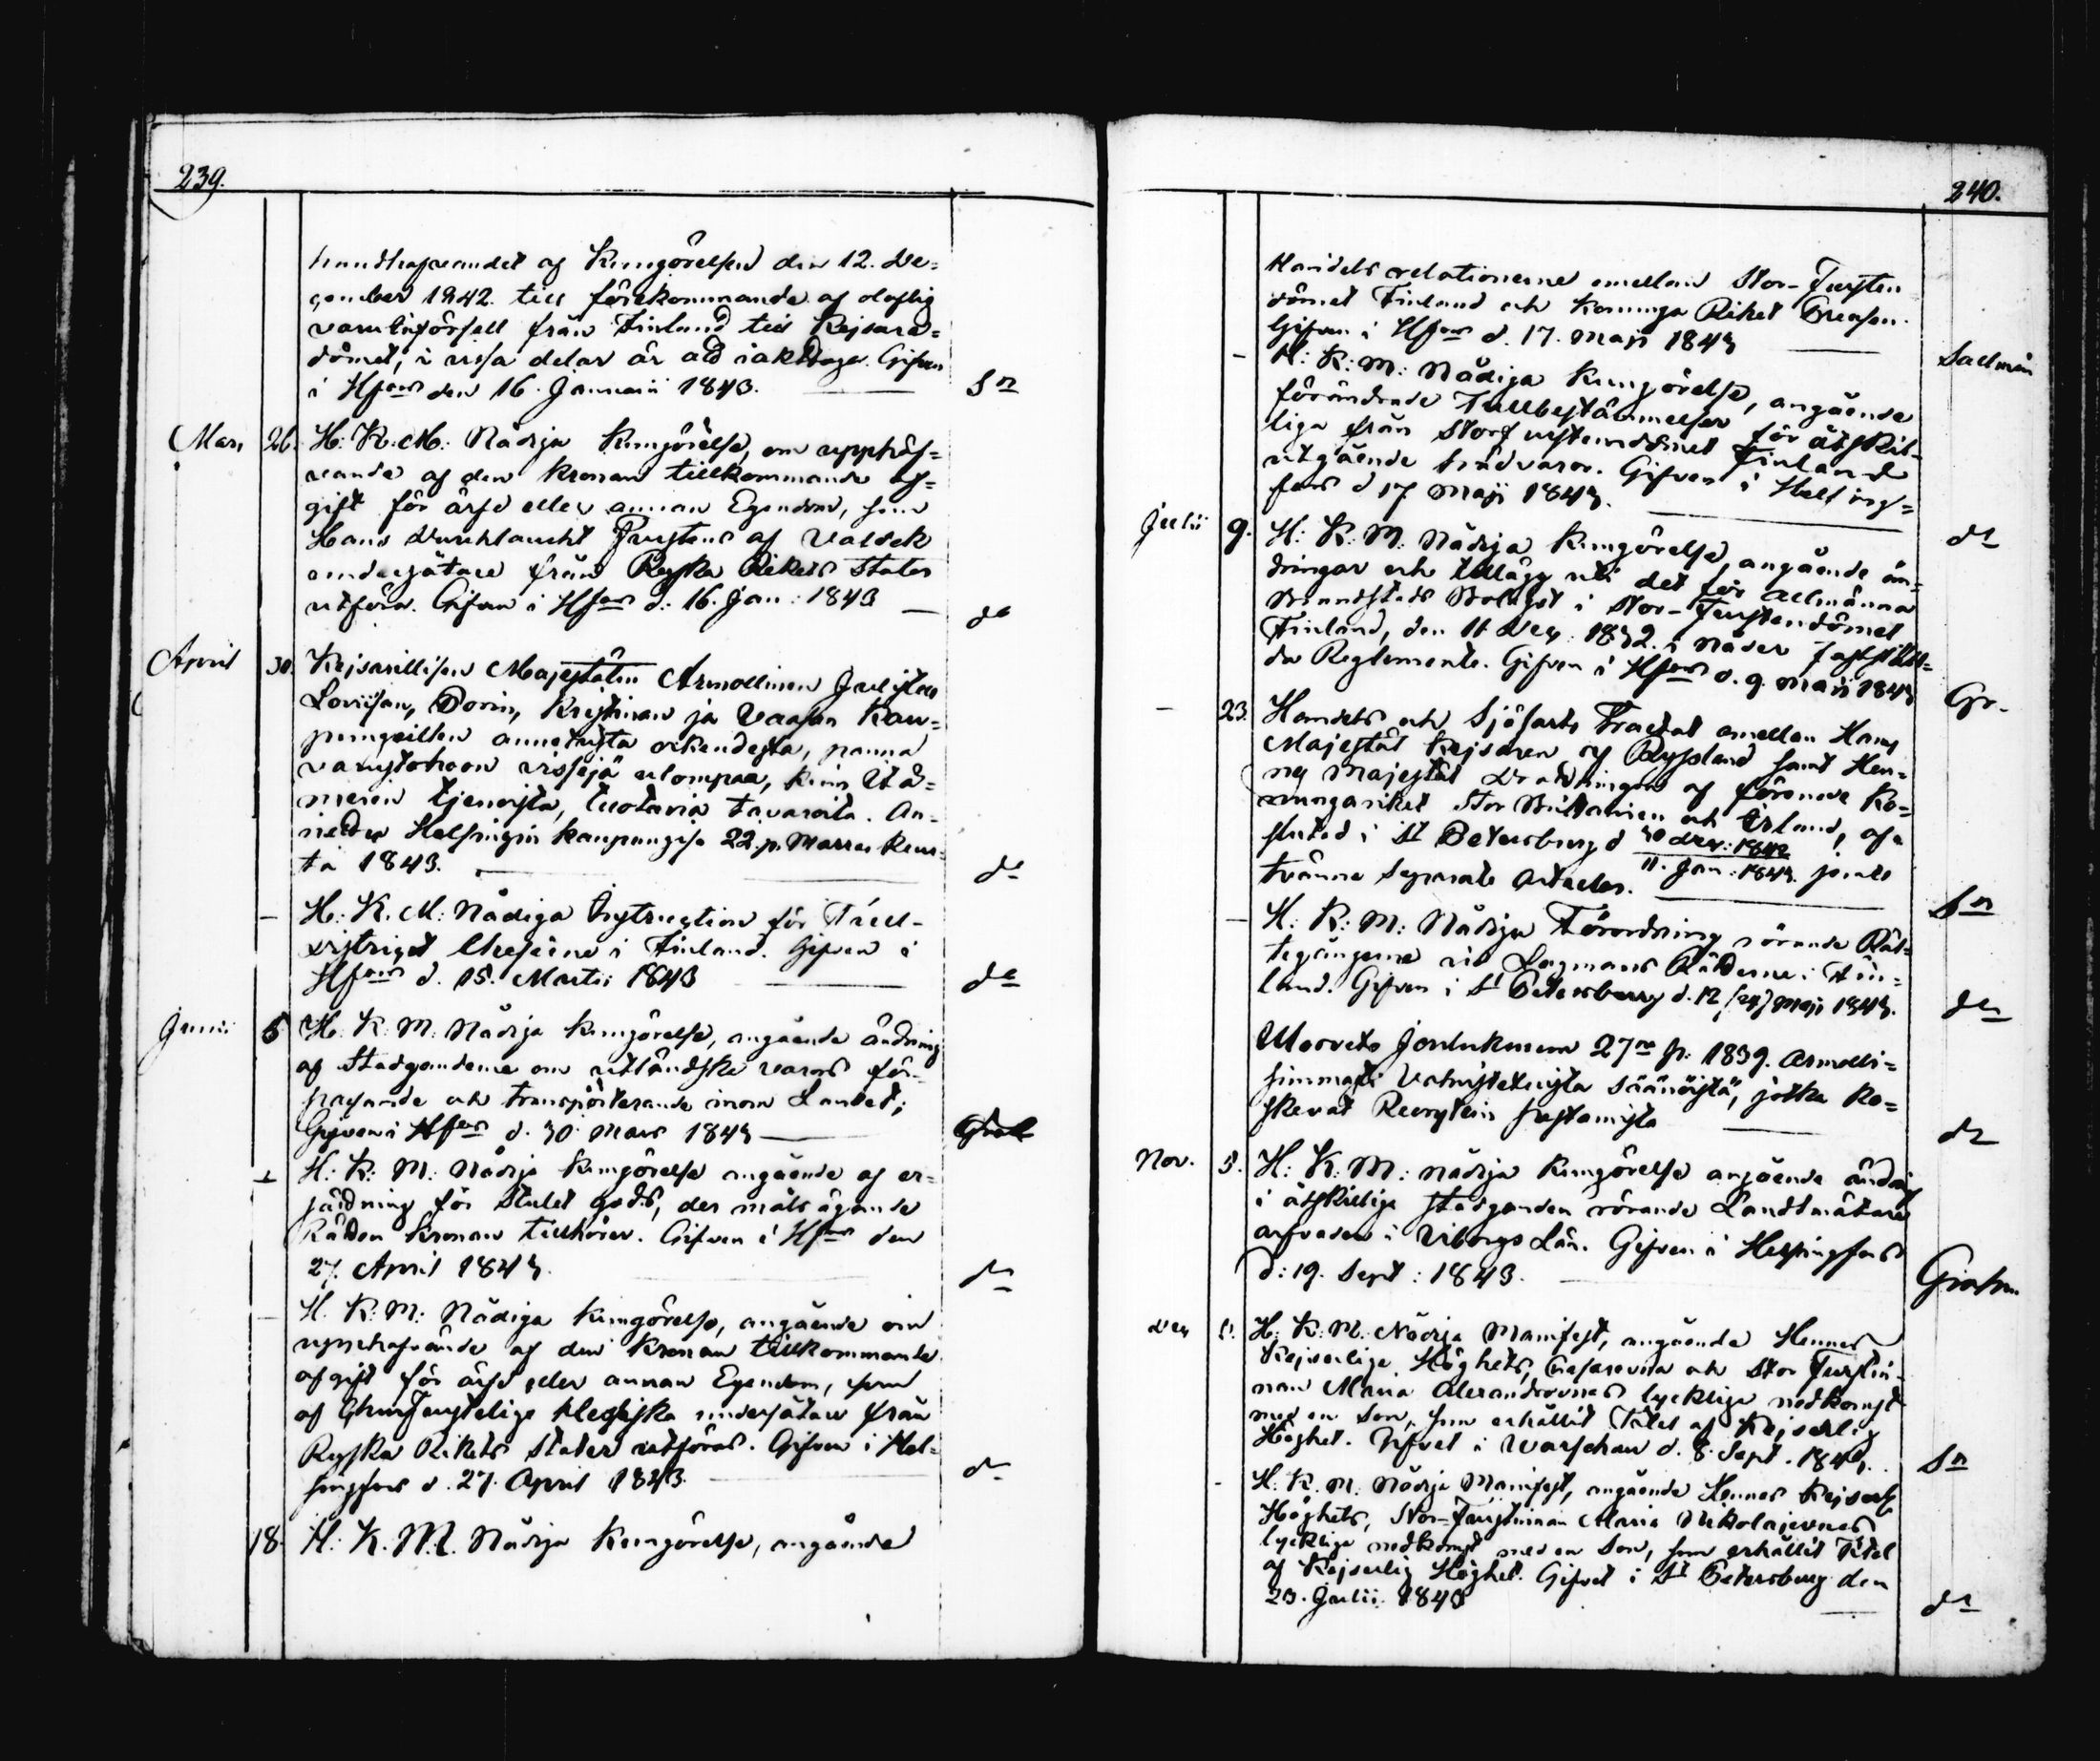 239.
handhafvandet af Kungörelsen den 12. De=
cember 1842 till förekommande af olaglig
varuinförsell från Finland till Kejsare=
dömet, i vissa delar är att iakttaga. Gifven
i Hfors den 16. Januarii 1843. Sn
Mars 26. H: K: M: Nådiga Kungörelse, om upphäf=
vande af den Kronan tillkommande af=
gift för ärfd eller annan Egendom, som
Hans Durchlaucht Furstens af Valdek
undersåtare från Ryska Rikets Stater
utföra. Gifven i Hfors d: 16. Jan: 1843 do
April 30. Kejsarillisen Majestätin Armollinen Julistus
Loviisan, Porin, Kristinan ja Vaasan Kau=
pungeillen annetuista oikeudesta, panna
varustohoon vissejä ulompaa, kuin Itä=
meren tjenoista, tuotavia tavaroita. An=
nettu Helsingin kaupungisa 22. p. Marras kuu=
ta 1843. do
— H: K. M: Nådiga Instruction för Tull-
districts Cheferne i Finland. Gifven i
Hfors d. 15. Martii 1843 do
Junii 5 H. K. M. Nådiga Kungörelse, angående ändring
af Stadgandena om utländska varors för=
passande och transporterande inom Landet;
Gifven i Hfors d. 30. Mars 1843
H: K: M: Nådiga Kungörelse angående af er=
sättning för stulet gods, der målsägande
Rätten Kronan tillhörer. Gifven i Hfors den
27. April 1843. do
— H. K: M: Nådiga Kungörelse, angående
upphäfvande af den Kronan tillkommande
afgift för ärfd eller annan Egendom, som
af Churfurstelige Hessiska undersåtare från
Ryska Rikets Stater utföras. Gifven i Hel=
singfors d. 27. April 1843. do
18. H. K. M. Nådiga Kungörelse, angående
240.
Handels relationerne emellan Stor-Fursten
dömet Finland och Konunga Riket Preussen.
Gifven i Hfors d. 17. Maji 1843 Sallmén
— H: K: M: Nådiga Kungörelse, angående
förändrade Tullbestämmelser för åtskil=
liga från Storfurstendömet Finland
utgående trädvaror. Gifven i Helsing=
fors d 17 Maji 1843. do
Julii 9. H: K. M: Nådiga Kungörelse, angående än=
dringar och tillägg uti det för Allmänna
Brandstods Bolaget i Stor-Furstendömet
Finland, den 11 Dec: 1832. i Nåder fastställ=
da Reglemente. Gifven i Hfors d. 9. Maji 1843 Gr.
— 23. Handels och Sjöfarts Tractat emellan Hans
Majestät Kejsaren af Ryssland samt Hen=
nes Majestät Drottningen af förenade Ko=
nungariket Stor Brittanien och Irland, af=
slutad i St Petersburg d 30 Dec: 1842
11. Jan: 1843. jemte
tvänne Separate Articlar. Sn
— H: K: M: Nådiga Förordning rörande Rät=
tegångarne vid Lagmans Rätterne i Fin=
land. Gifven i St Petersburg d. 12 (24) Maji 1843. do
Uloosveto Joulukuun 27na p: 1839. Armolli=
simmasti Vahvistetuista Säännöistä, jotka Ko=
skevat
do
Nov. 5. H: K: M: Nådiga Kungörelse angående ändring
i åtskillige stadganden rörande Landtmätare
arfvoden i Viborgs Län. Gifven i Helsingfors
d: 19. Sept: 1843.
Dec H: K: M: Nådiga Manifest, angående Hennes
Kejserliga Höghets, Cesarevna och Stor Furstin=
nan Maria Alexandrovnas lyckliga nedkomst
med en Son, som erhållit Titel af Kejserlig
Höghet. Gifvet i Warschau d. 8. Sept. 1843. Sn
- H. K. M. Nådiga Manifest, angående Hennes Kejserl
Höghets, Stor-Furstinnan Maria Nikolajevnas
lyckliga nedkomst med en Son, som erhållit Titel
af Kejserlig Höghet. Gifvet i St Petersburg den
23. Julii 1843 do